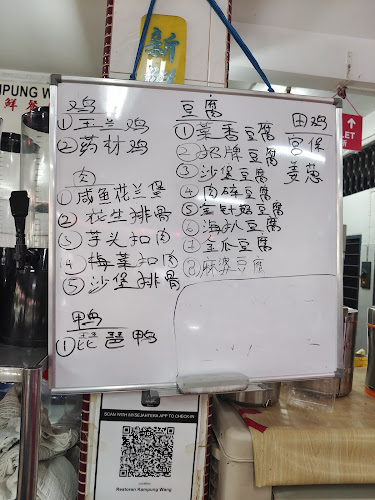 新
鸡
①玉兰鸡
②药材鸡
肉
①咸鱼花兰煲
②花生排骨
③芋头扣肉
④梅菜扣肉
⑤沙煲排骨
鸭
①琵琶鸭
豆腐
①草香豆腐
②招牌豆腐
③沙煲豆腐
④肉碎豆腐
⑤金针菇豆腐
⑥海趴豆腐
⑦金瓜豆腐
⑧麻婆豆腐
田鸡
宫保
姜葱
PUNG W
鲜餐
TOILET
SCAN WITH MYSEJAHTERA APP TO CHECK-IN
Restoran Kampung Wang